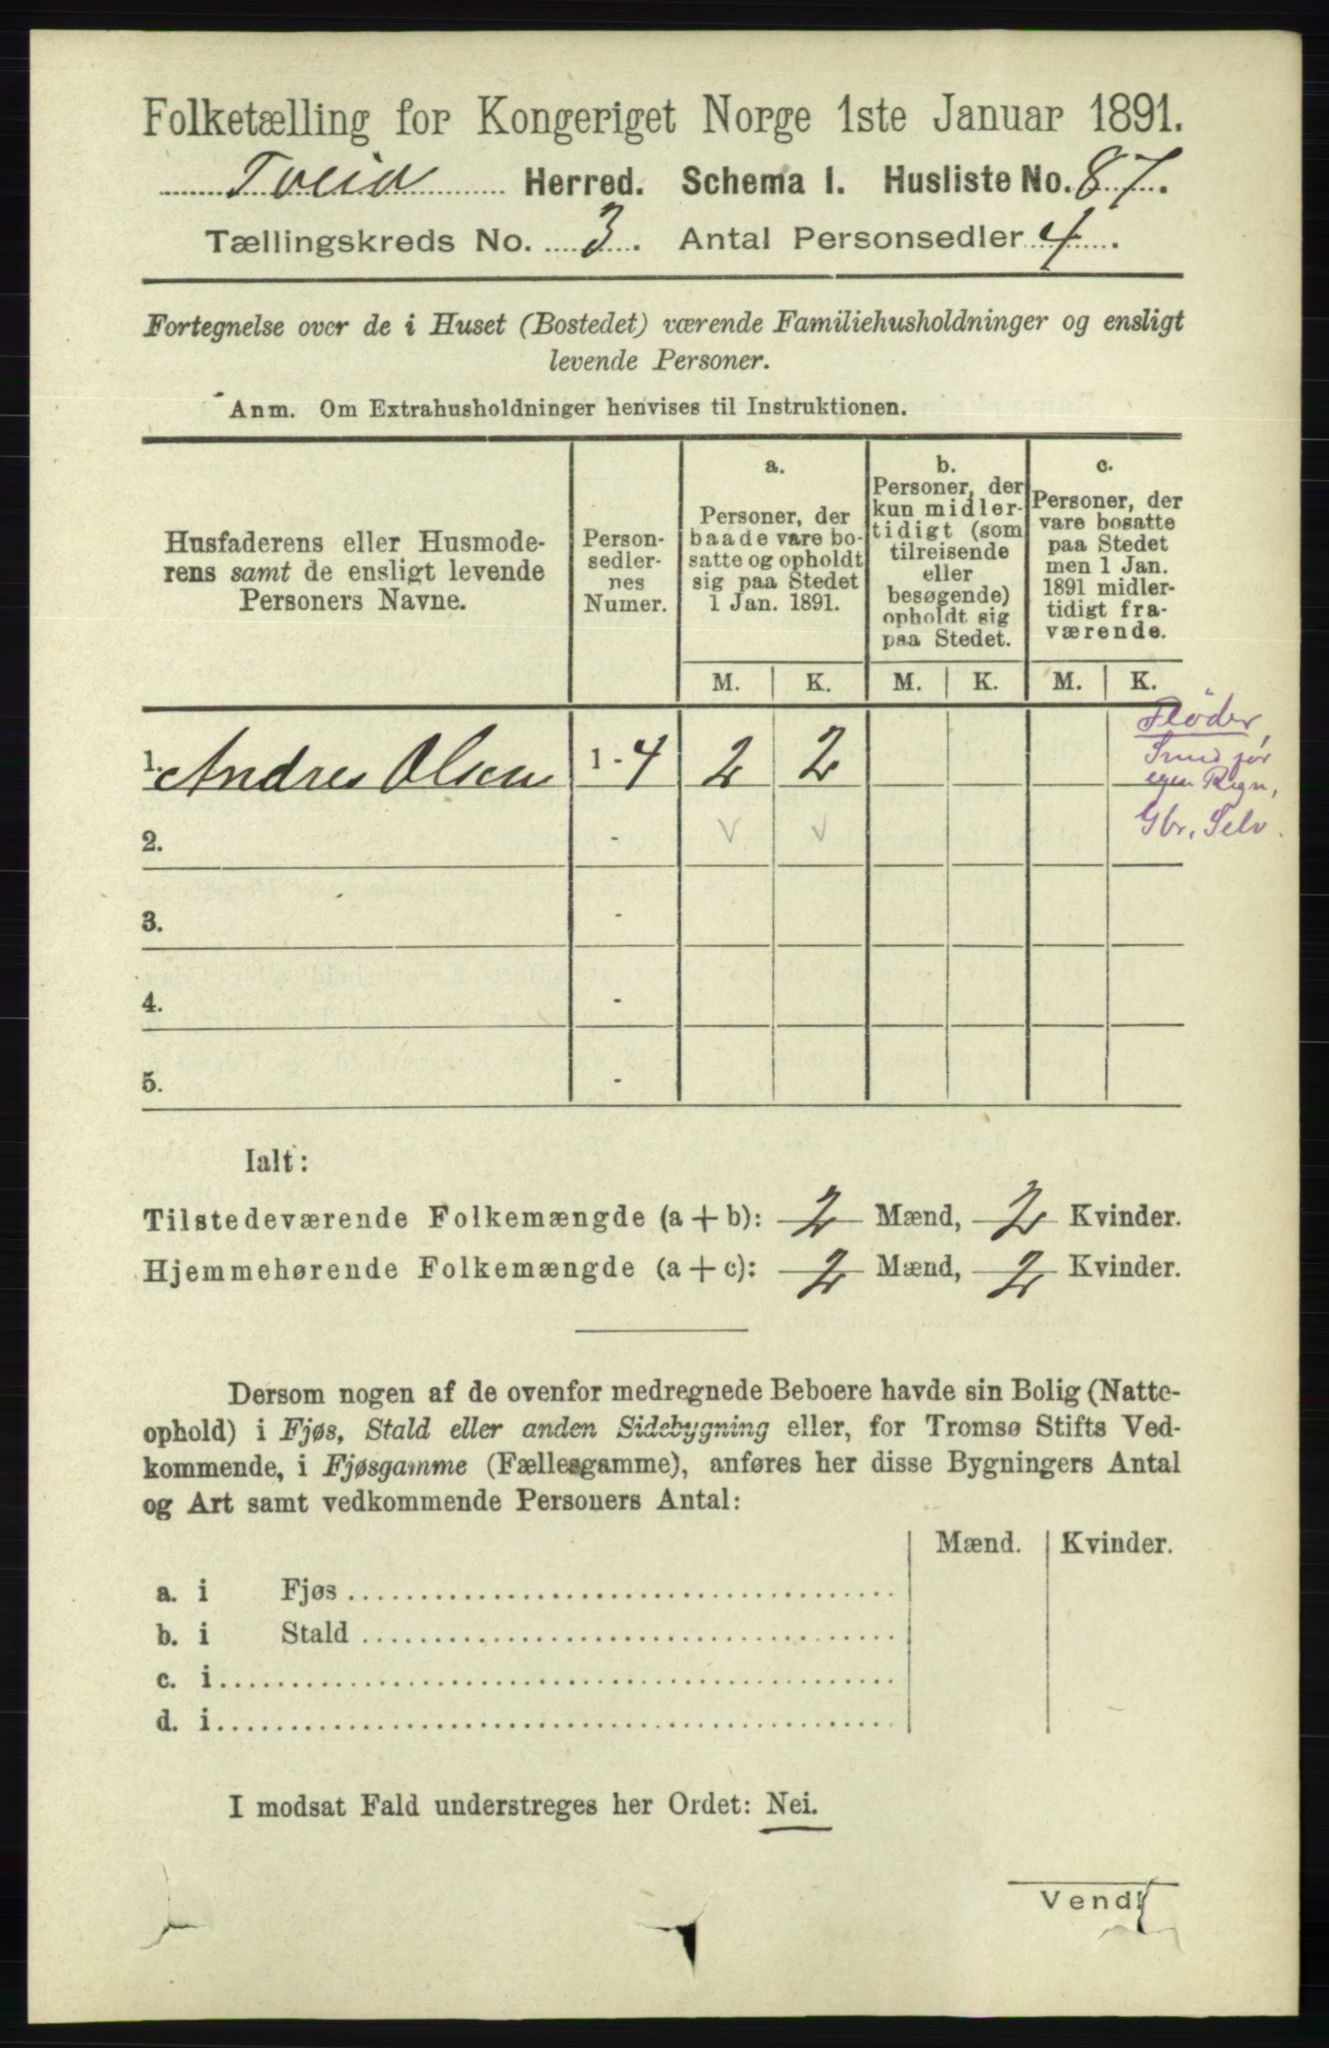 Folketælling for Kongeriget Norge 1ste Januar 1891.
Tveid Herred. Schema I. Husliste No. 87.
Tællingskreds No. 3. Antal Personsedler 4.
Fortegnelse over de i Huset (Bostedet) værende Familiehusholdninger og ensligt
levende Personer.
Anm. Om Extrahusholdninger henvises til Instruktionen.
Husfaderens eller Husmode-
rens samt de ensligt levende
Personers Navne.
Person-
sedler-
nes
Numer.
a.
Personer, der
baade vare bo-
satte og opholdt
sig paa Stedet
1 Jan. 1891.
b.
Personer, der
kun midler-
tidigt (som
tilreisende
eller
besøgende)
opholdt sig
paa Stedet.
c.
Personer, der
vare bosatte
paa Stedet
men 1 Jan.
1891 midler-
tidigt fra-
værende.
M. K. M. K. M. K.
1. Andres Olsen 1 - 4 2 2
Fløder,
Smed for
egen Regn,
Gbr, Selv.
2. - v v
3. -
4. -
5. -
Ialt:
Tilstedeværende Folkemængde (a + b): 2 Mænd, 2 Kvinder.
Hjemmehørende Folkemængde (a + c): 2 Mænd, 2 Kvinder.
Dersom nogen af de ovenfor medregnede Beboere havde sin Bolig (Natte-
ophold) i Fjøs, Stald eller anden Sidebygning eller, for Tromsø Stifts Ved-
kommende, i Fjøsgamme (Fællesgamme), anføres her disse Bygningers Antal
og Art samt vedkommende Personers Antal:
Mænd. Kvinder.
a. i Fjøs
b. i Stald
c. i
d. i
I modsat Fald understreges her Ordet: Nei.
Vend!